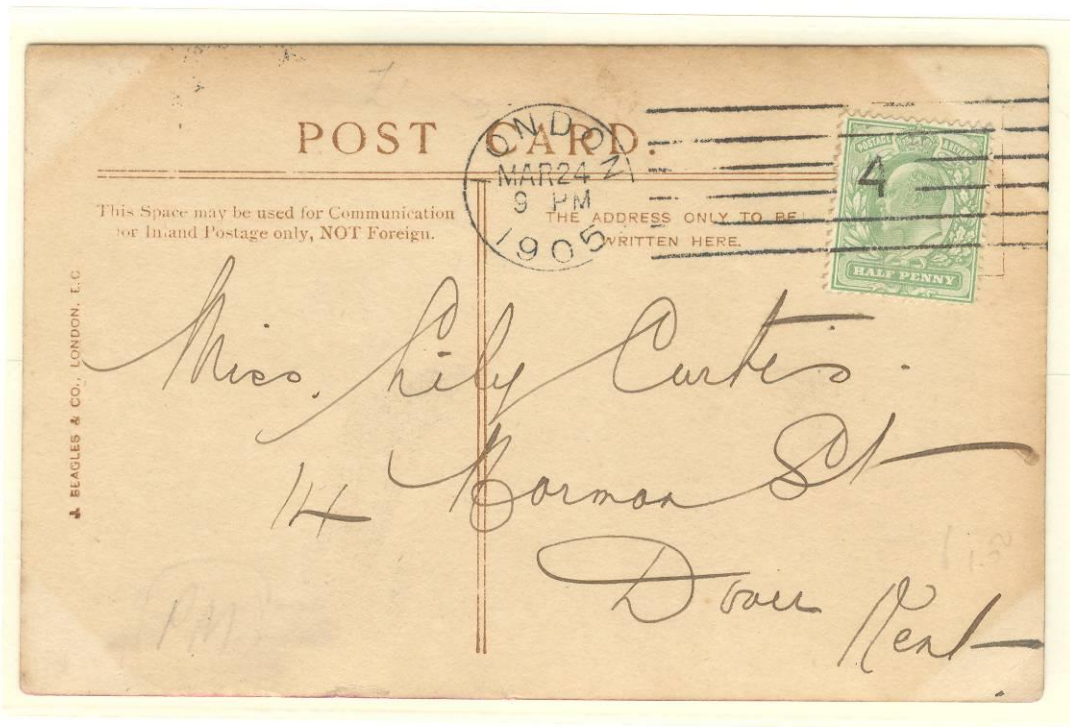 POST CARD.
LONDON
MAR 24
9 PM
1905
4
POSTAGE
HALF PENNY
This Space may be used for Communication
for Inland Postage only, NOT Foreign.
THE ADDRESS ONLY TO BE
WRITTEN HERE.
J. BEAGLES & CO., LONDON, E.C
Miss. Lily Curtis.
14 Norman St
Dover
Kent